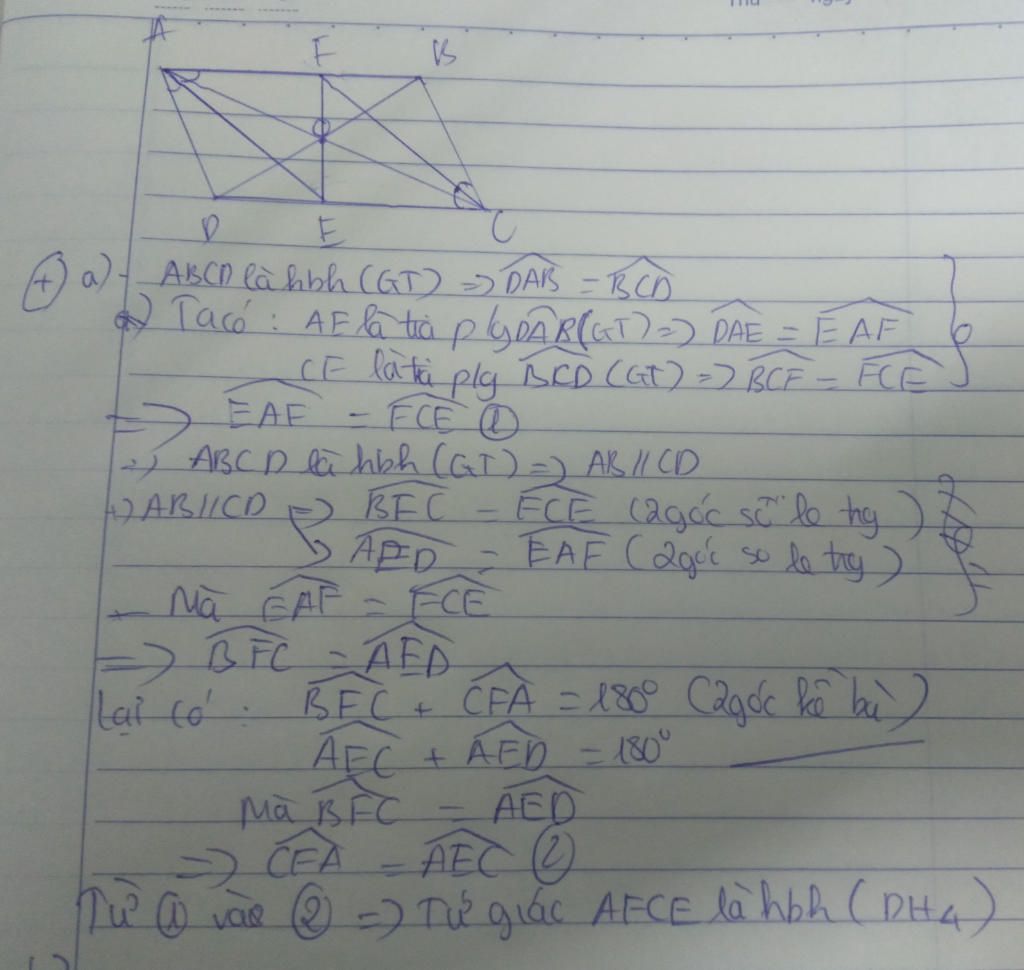 A F B
O
D E C
(+) a) - ABCD là hbh (GT) => DAB = BCD
+) Ta có : AE là tia p/g DAB (GT) => DAE = EAF
CF là tia p/g BCD (GT) => BCF = FCE
=> EAF = FCE ①
-> ABCD là hbh (GT) => AB // CD
+) AB // CD => BFC = FCE (2 góc so le trg)
AED = EAF (2 góc so le trg)
- Mà EAF = FCE
=> BFC = AED
Lại có : BFC + CFA = 180° (2 góc kề bù)
AEC + AED = 180°
Mà BFC = AED
=> CFA = AEC ②
Từ ① vào ② => Tứ giác AFCE là hbh (DH4)